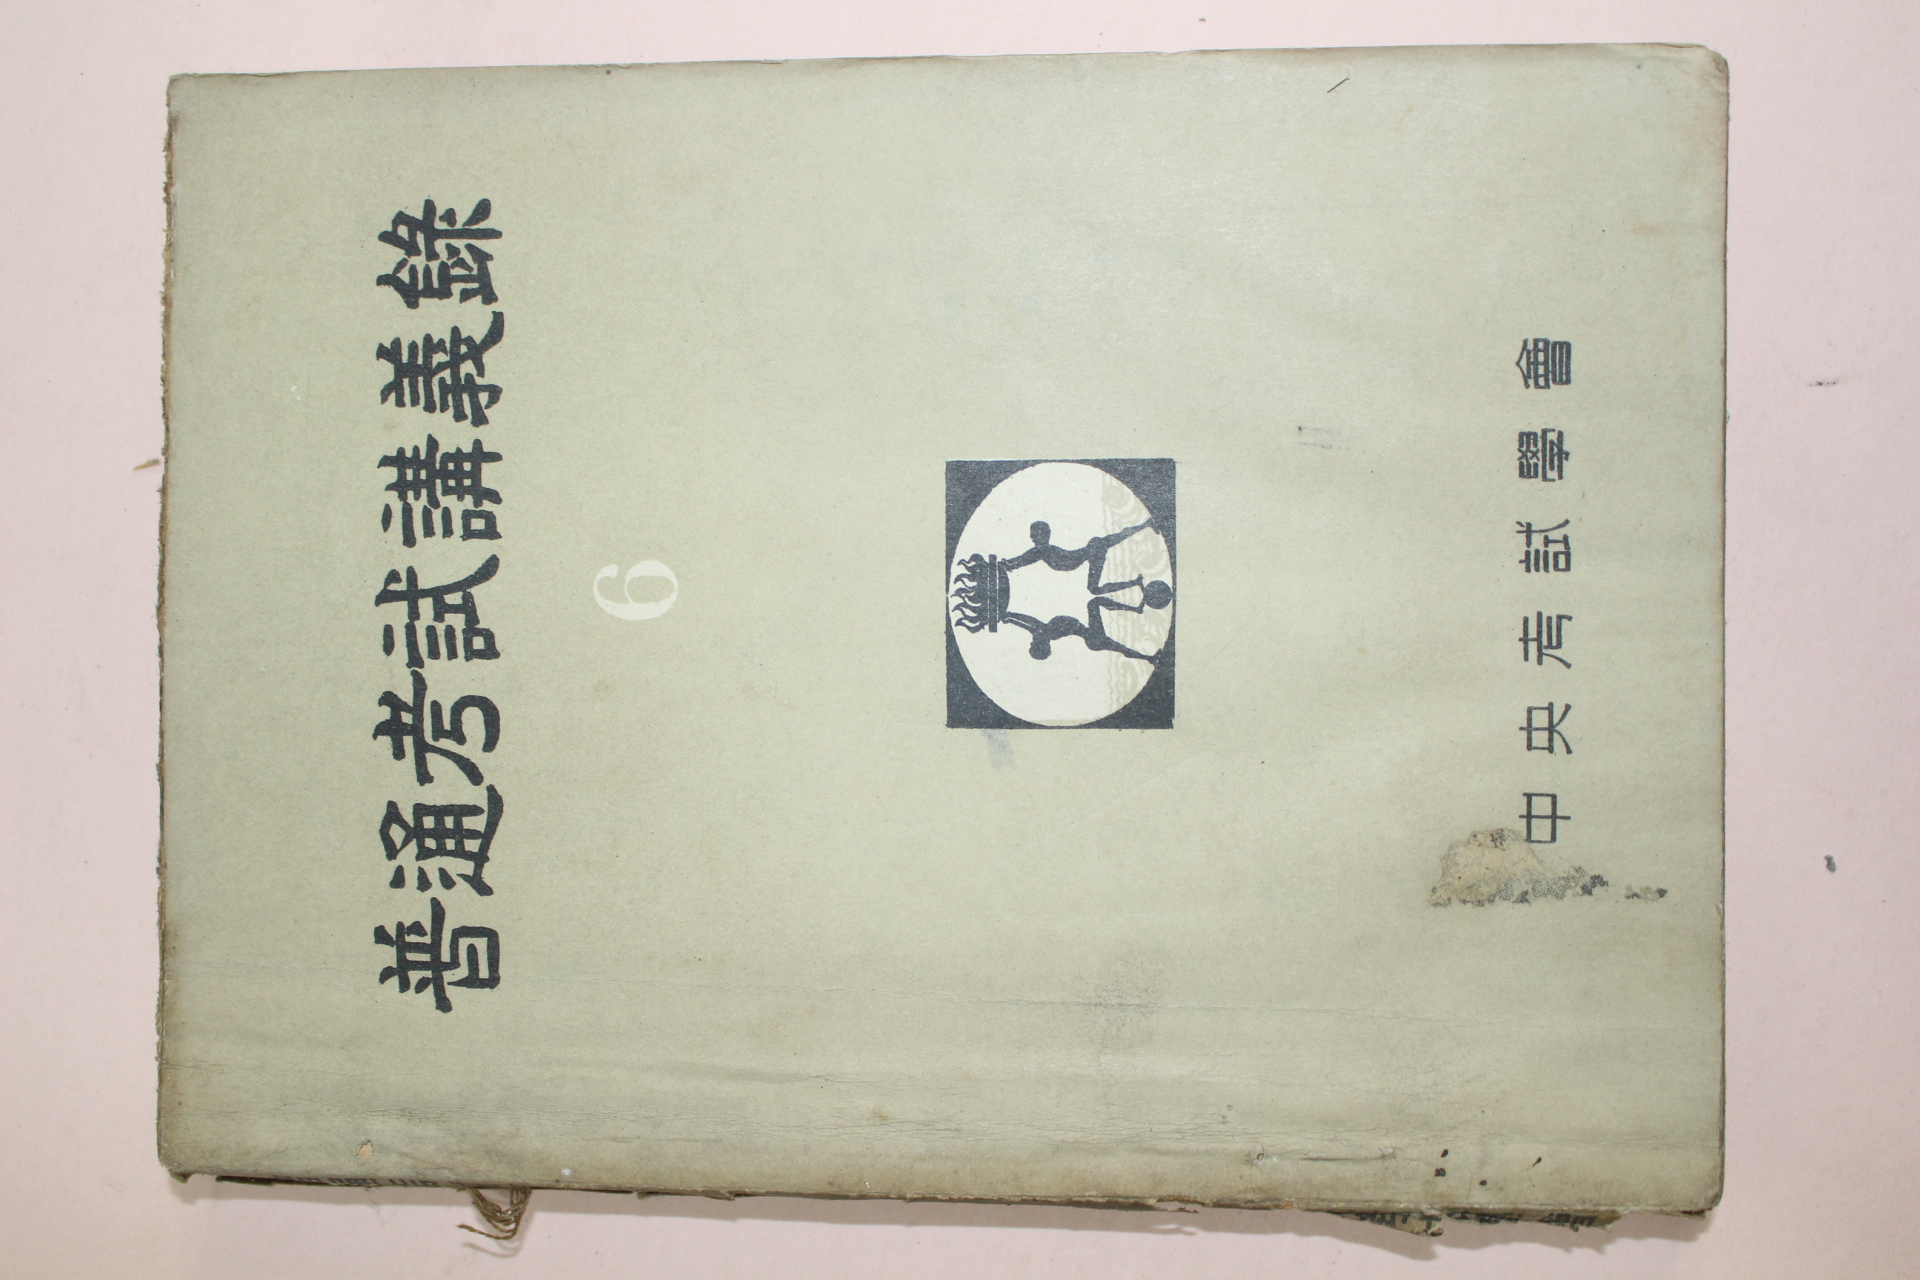 普通考試講義錄
6
中央考試學會